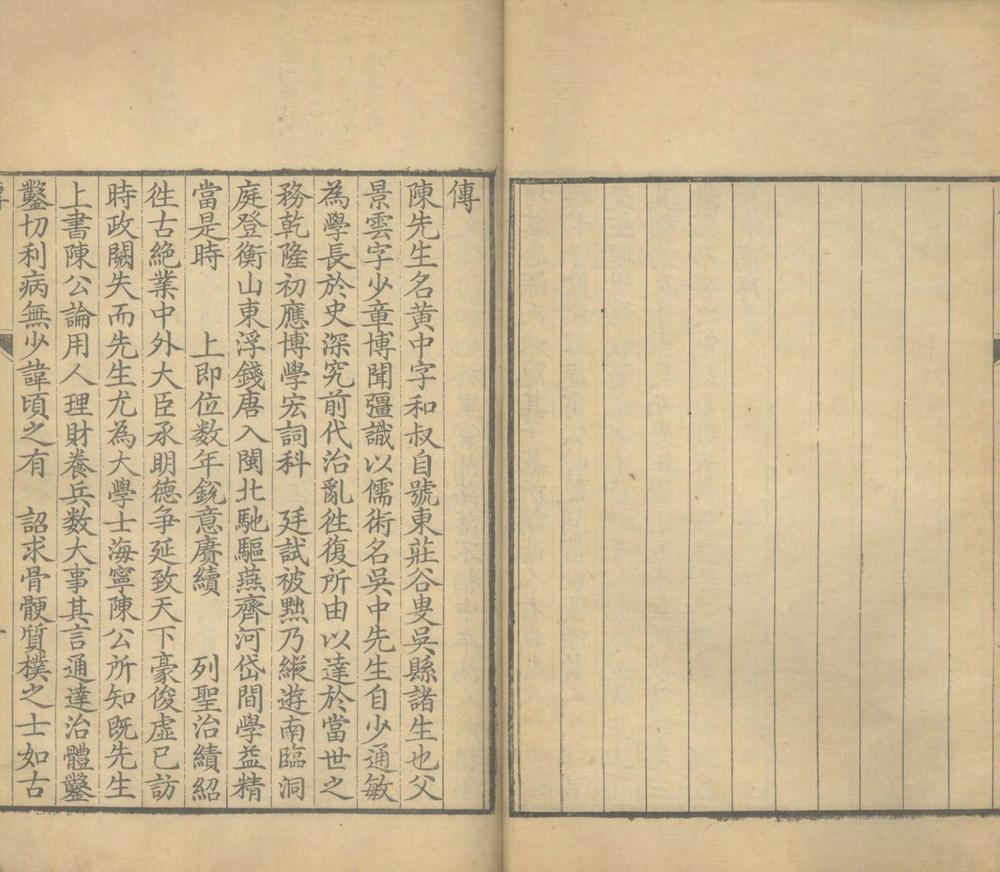 傳
陳先生名黄中字和叔自號東莊谷叟吳縣諸生也父
景雲字少章博聞彊識以儒術名吳中先生自少通敏
為學長於史深究前代治亂徃復所由以達於當世之
務乾隆初應博學宏詞科　廷試被黜乃縱遊南臨洞
庭登衡山東浮錢唐入閩北馳驅燕齊河岱間學益精
當是時　　上即位数年銳意賡續　　列聖治績紹
徃古絶業中外大臣承明德争延致天下豪俊虛已訪
時政闕失而先生尤為大學士海寧陳公所知既先生
上書陳公論用人理財養兵数大事其言通達治體鑿
鑿切利病無少諱頃之有　詔求骨骾質樸之士如古